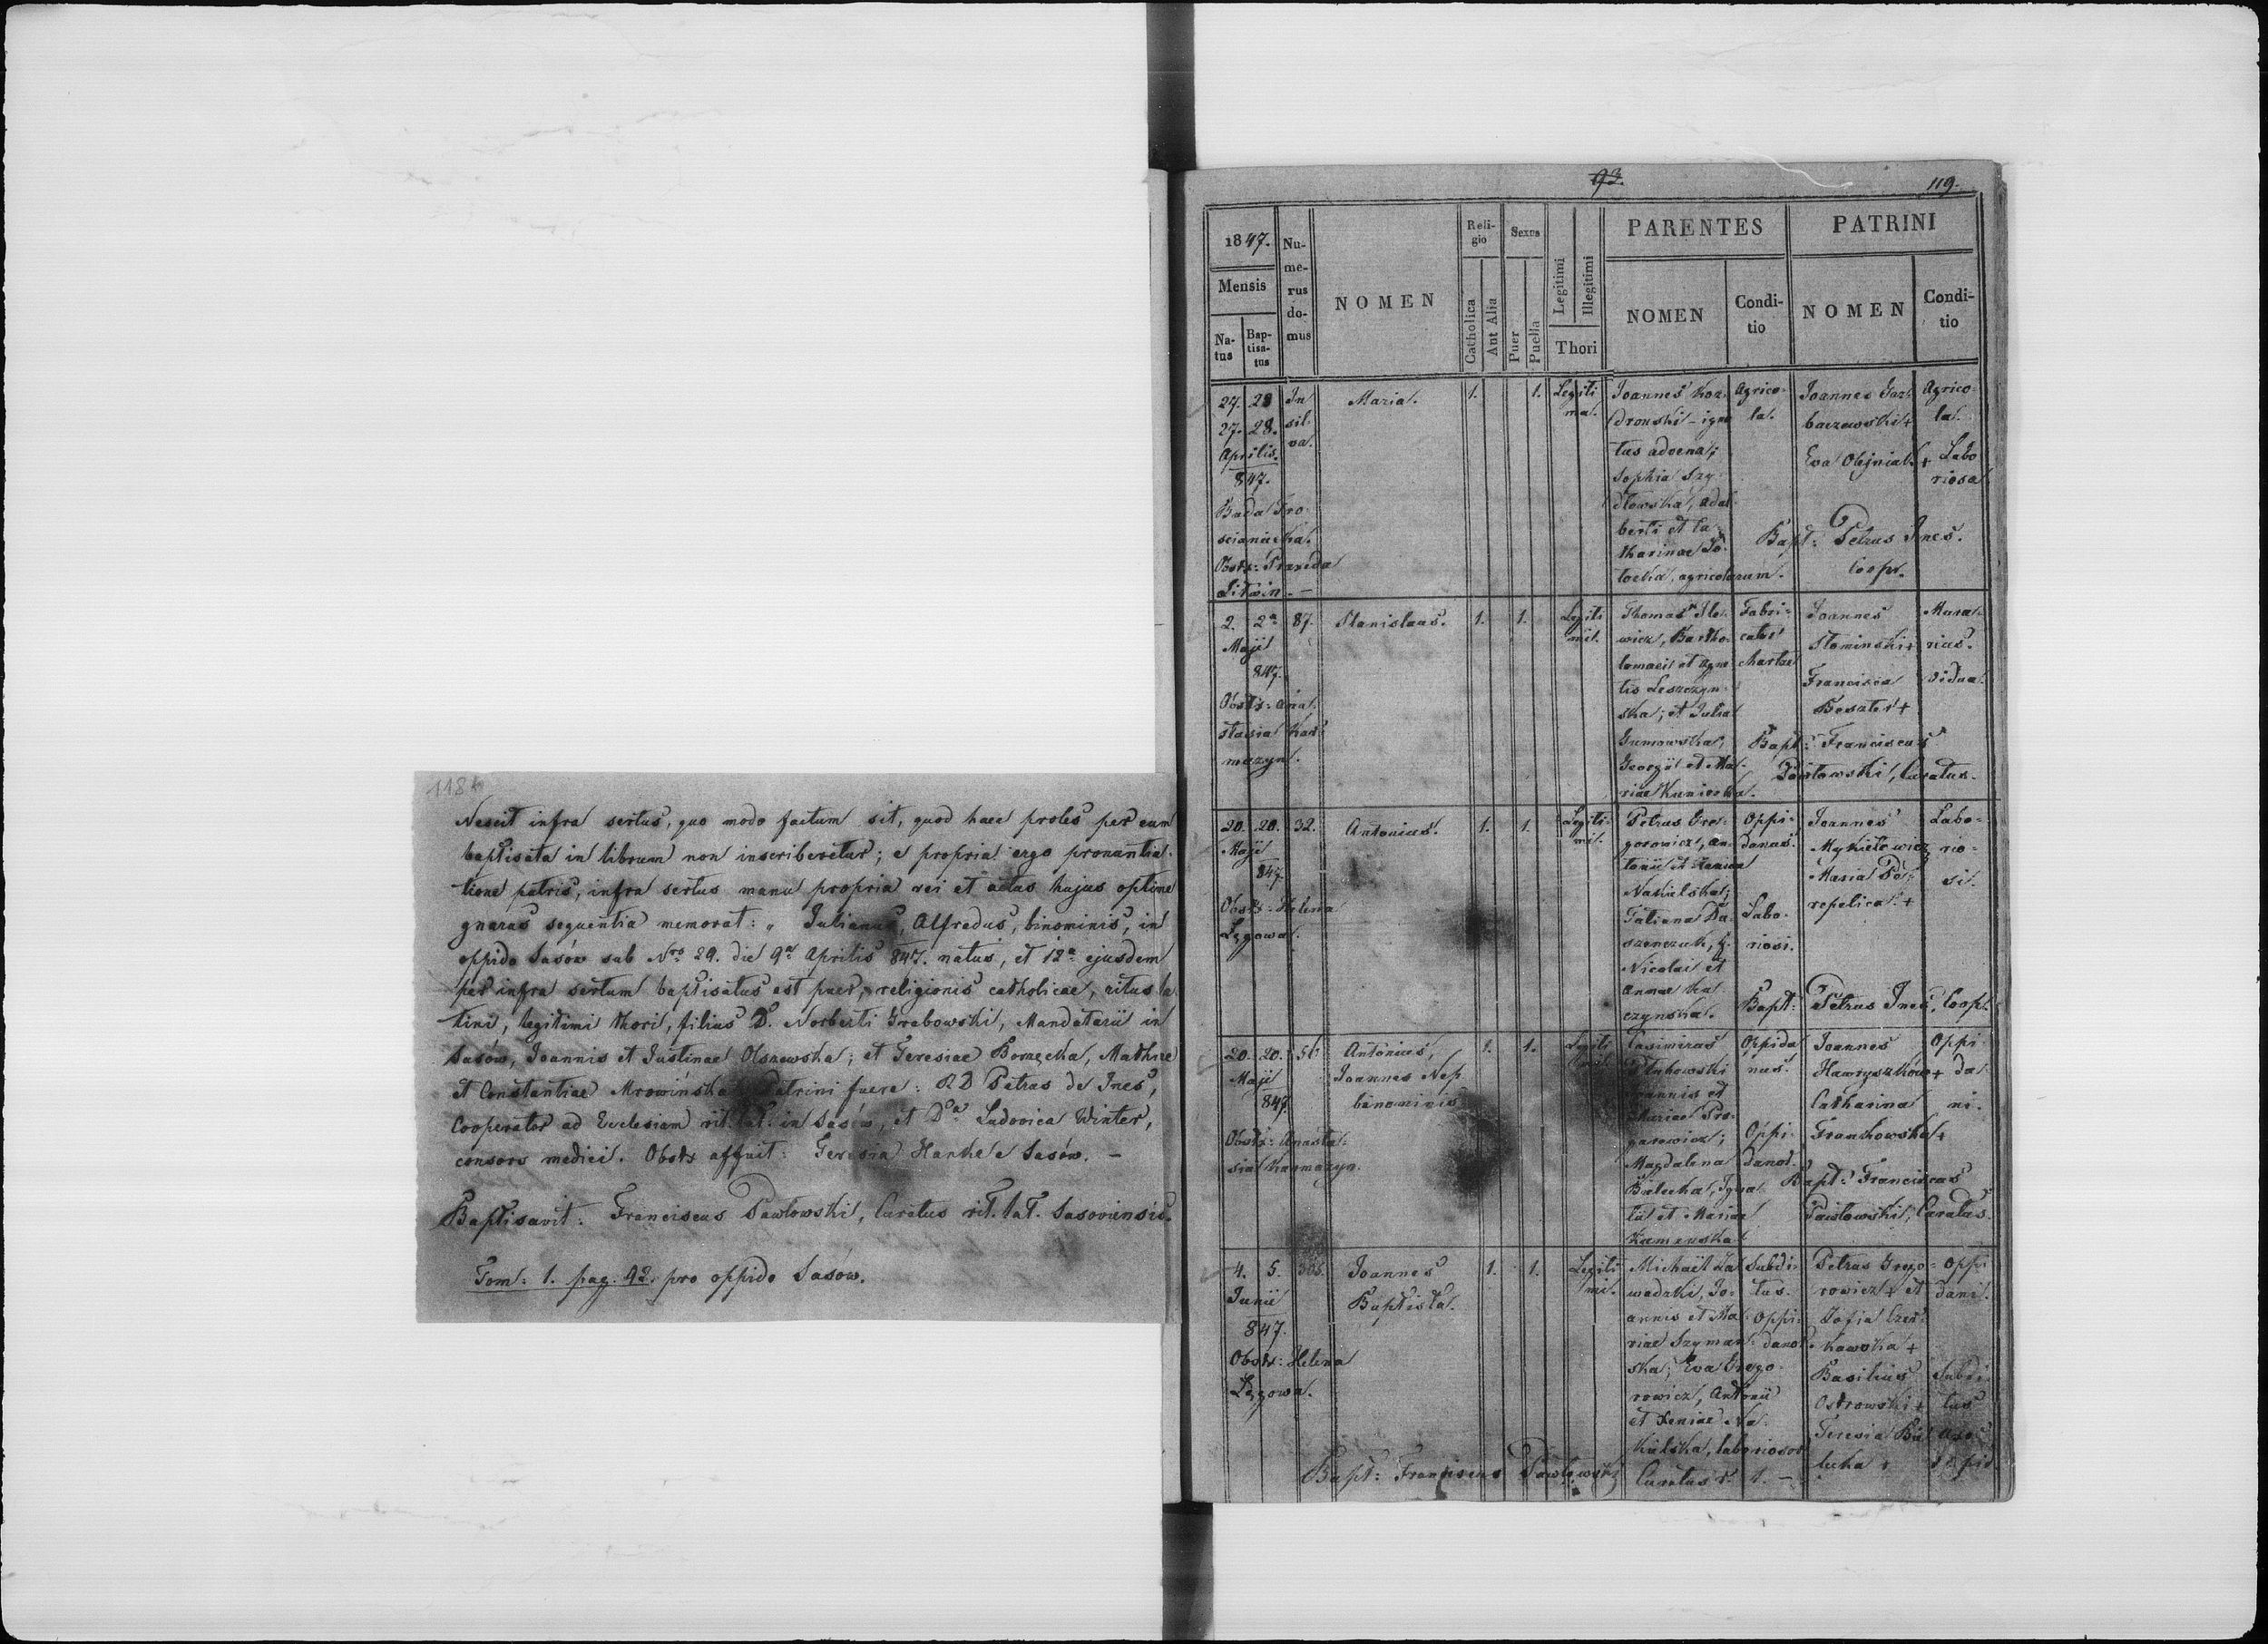 118a
Nescit infra scriptus, quo modo factum sit, quod haec proles per eum
baptisata in librum non inscriberetur; e propria ergo pronantia-
tione patris, infra scriptus manu propria rei et actus hujus optime
gnarus sequentia memorat: „ Julianus, Alfredus, binominis, in
oppido Sasów sub Nro 29. die 9a Aprilis 847. natus, et 12a ejusdem
per infra scriptum baptisatus est puer, religionis catholicae, ritus la-
tini, legitimi thori, filius D. Norberti Grabowski, Mandatarii in
Sasów, Joannis et Justinae Olszewska; et Teresiae
et Constantiae Mrowińska Patrini fuere: RD Petrus de Ines,
Cooperator ad Ecclesiam rit. lat. in Sasów, et Da Ludovica Winter,
consors medici. Obstx affuit: Teresia Hanke e Sasów. –
Baptisavit: Franciscus Pawłowski, Curatus rit. lat. Sasoviensis.
Tom: 1. pag. 92. pro oppido Sasów.
93.
119.
1847.
Mensis
Na-
tus
Bap-
tisa-
tus
Nu-
me-
rus
do-
mus
NOMEN
Reli-
gio
Catholica
Aut Alia
Sexus
Puer
Puella
Legitimi
Illegitimi
Thori
PARENTES
NOMEN
Condi-
tio
PATRINI
NOMEN
Condi-
tio
27. 28
27. 28.
Aprilis.
847.
Obstx:
Litwin. –
In
sil-
va.
Maria.
1.
1.
Legiti
ma.
Joannes
dronski – igno
tus advena;
Sophia Szy-
dłowska, Adal-
berti et Ca-
tharinae
agricolarum.
Agrico-
la.
Joannes
Eva Olejniak +
Agrico-
la.
Labo
riosa
Bapt: Petrus Ines.
Coopr.
2. 2a
Maji
847.
Obstx: Ana-
stasia Kar-
mazyn.
87.
Stanislaus.
1.
1.
Legiti
mi.
Thomas
wicz, Bartho-
lomaei et Agne-
tis Leszczyn-
ska; et Julia
Gumowska,
Georgii et Ma-
riae
Fabri-
cator
chartae
Joannes
Słominski +
Francisca
Beszter +
Mura-
rius.
vidua.
Bapt: Franciscus
Pawłowski, Curatus.
20. 20.
Maji
847
Obstx: Helena
Łzgowa.
32.
Antonius.
1.
1.
Legiti-
mi.
Petrus Gre-
gorowicz, An-
tonii et Xenia
Nakulska;
Tatiana Da-
szenczuk, f.
Nicolai et
Annae Ka-
czynska.
Oppi-
danus.
Labo-
riosi.
Joannes
Mykietowicz
Maria Po-
repelica. +
Labo-
rio-
si.
Bapt: Petrus Ines, Coopr.
20. 20.
Maji
847.
Obstx: Anasta-
sia Karmazyn.
56
Antonius,
Joannes Nep
binominis
1.
1.
Legiti
Casimirus
Joannis et
Mariae
Magdalena
Białecka, Igna-
tii et Mariae
Kamenska
Oppida
nus.
Oppi-
danor.
Joannes
Hawryszków +
Catharina
Frankowska +
Oppi
da
ni.
Bapt: Franciscus
Pawłowski, Curatus.
4. 5.
Junii
847.
Obstx: Helena
Łzgowa.
Joannes
Baptista.
1.
1.
Legiti
mi.
Michael Za
wadzki, Jo-
annis et Ma
riae Szyman-
ska; Eva Grego-
rowicz, Antonii
et Xeniae Na-
kulska, laborioror
Subdi-
tus.
Oppi-
danor.
Petrus Grego-
rowicz + et
Zofia Czer-
kawska +
Basilius
Ostrowski +
Teresia Bia
łecka +
Oppi
dani.
Subdi-
tus
Bapt: Franciscus Pawłowski
Curatus r. l. –